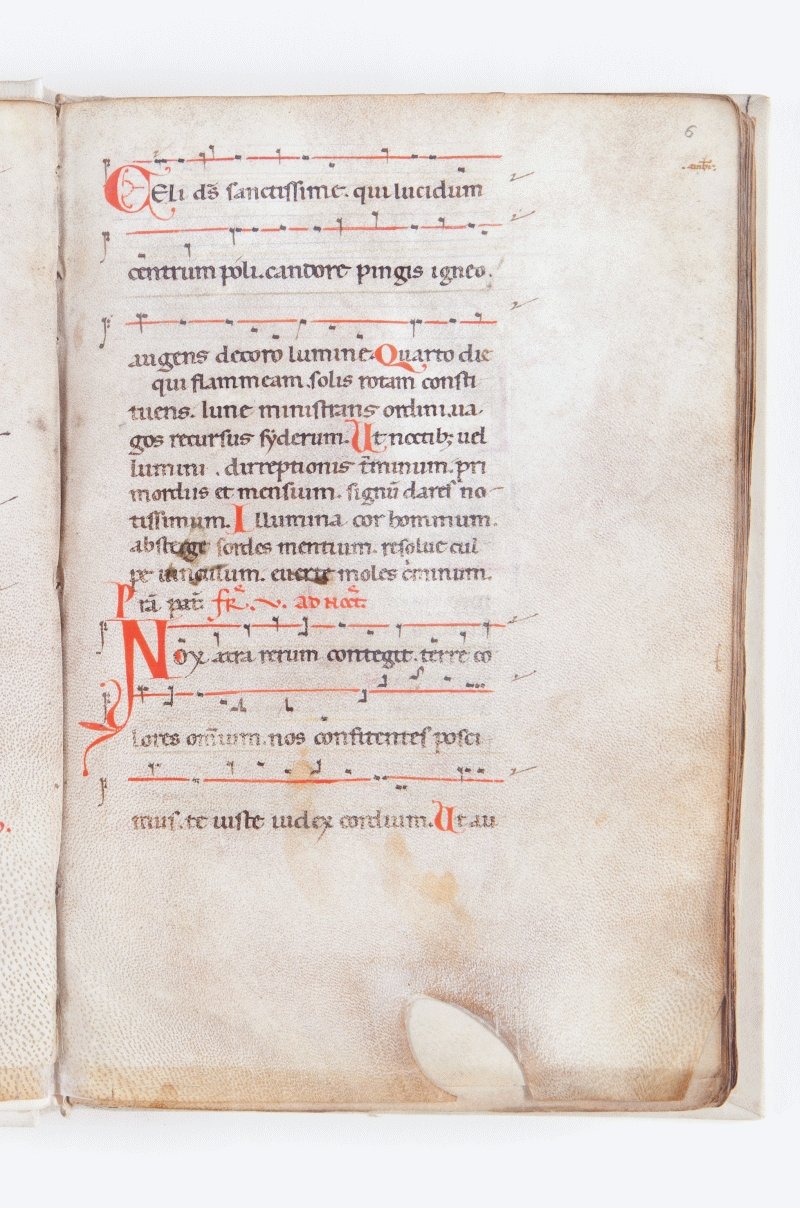 6
CELI dn̄s sanctissime. qui lucidum
centrum poli. candore pingis igneo.
augens decoro lumine. Quarto die
qui flammeam. solis rotam consti
tuens. lune ministrans ordini. ua
gos recursus syderum. Ut noctib; uel
lumini . dirreptionis t̄minum. pri
mordiis et mensium. signū dares no
tissimum. Illumina cor hominum.
absterge sordes mentium. resolue cul
pe uinculum. euerte moles c̄minum.
Prā pat̄
Nox atra rerum contegit. terre co
lores om̄ium. nos confitentes posci
mus. te iuste iudex cordium. Ut au